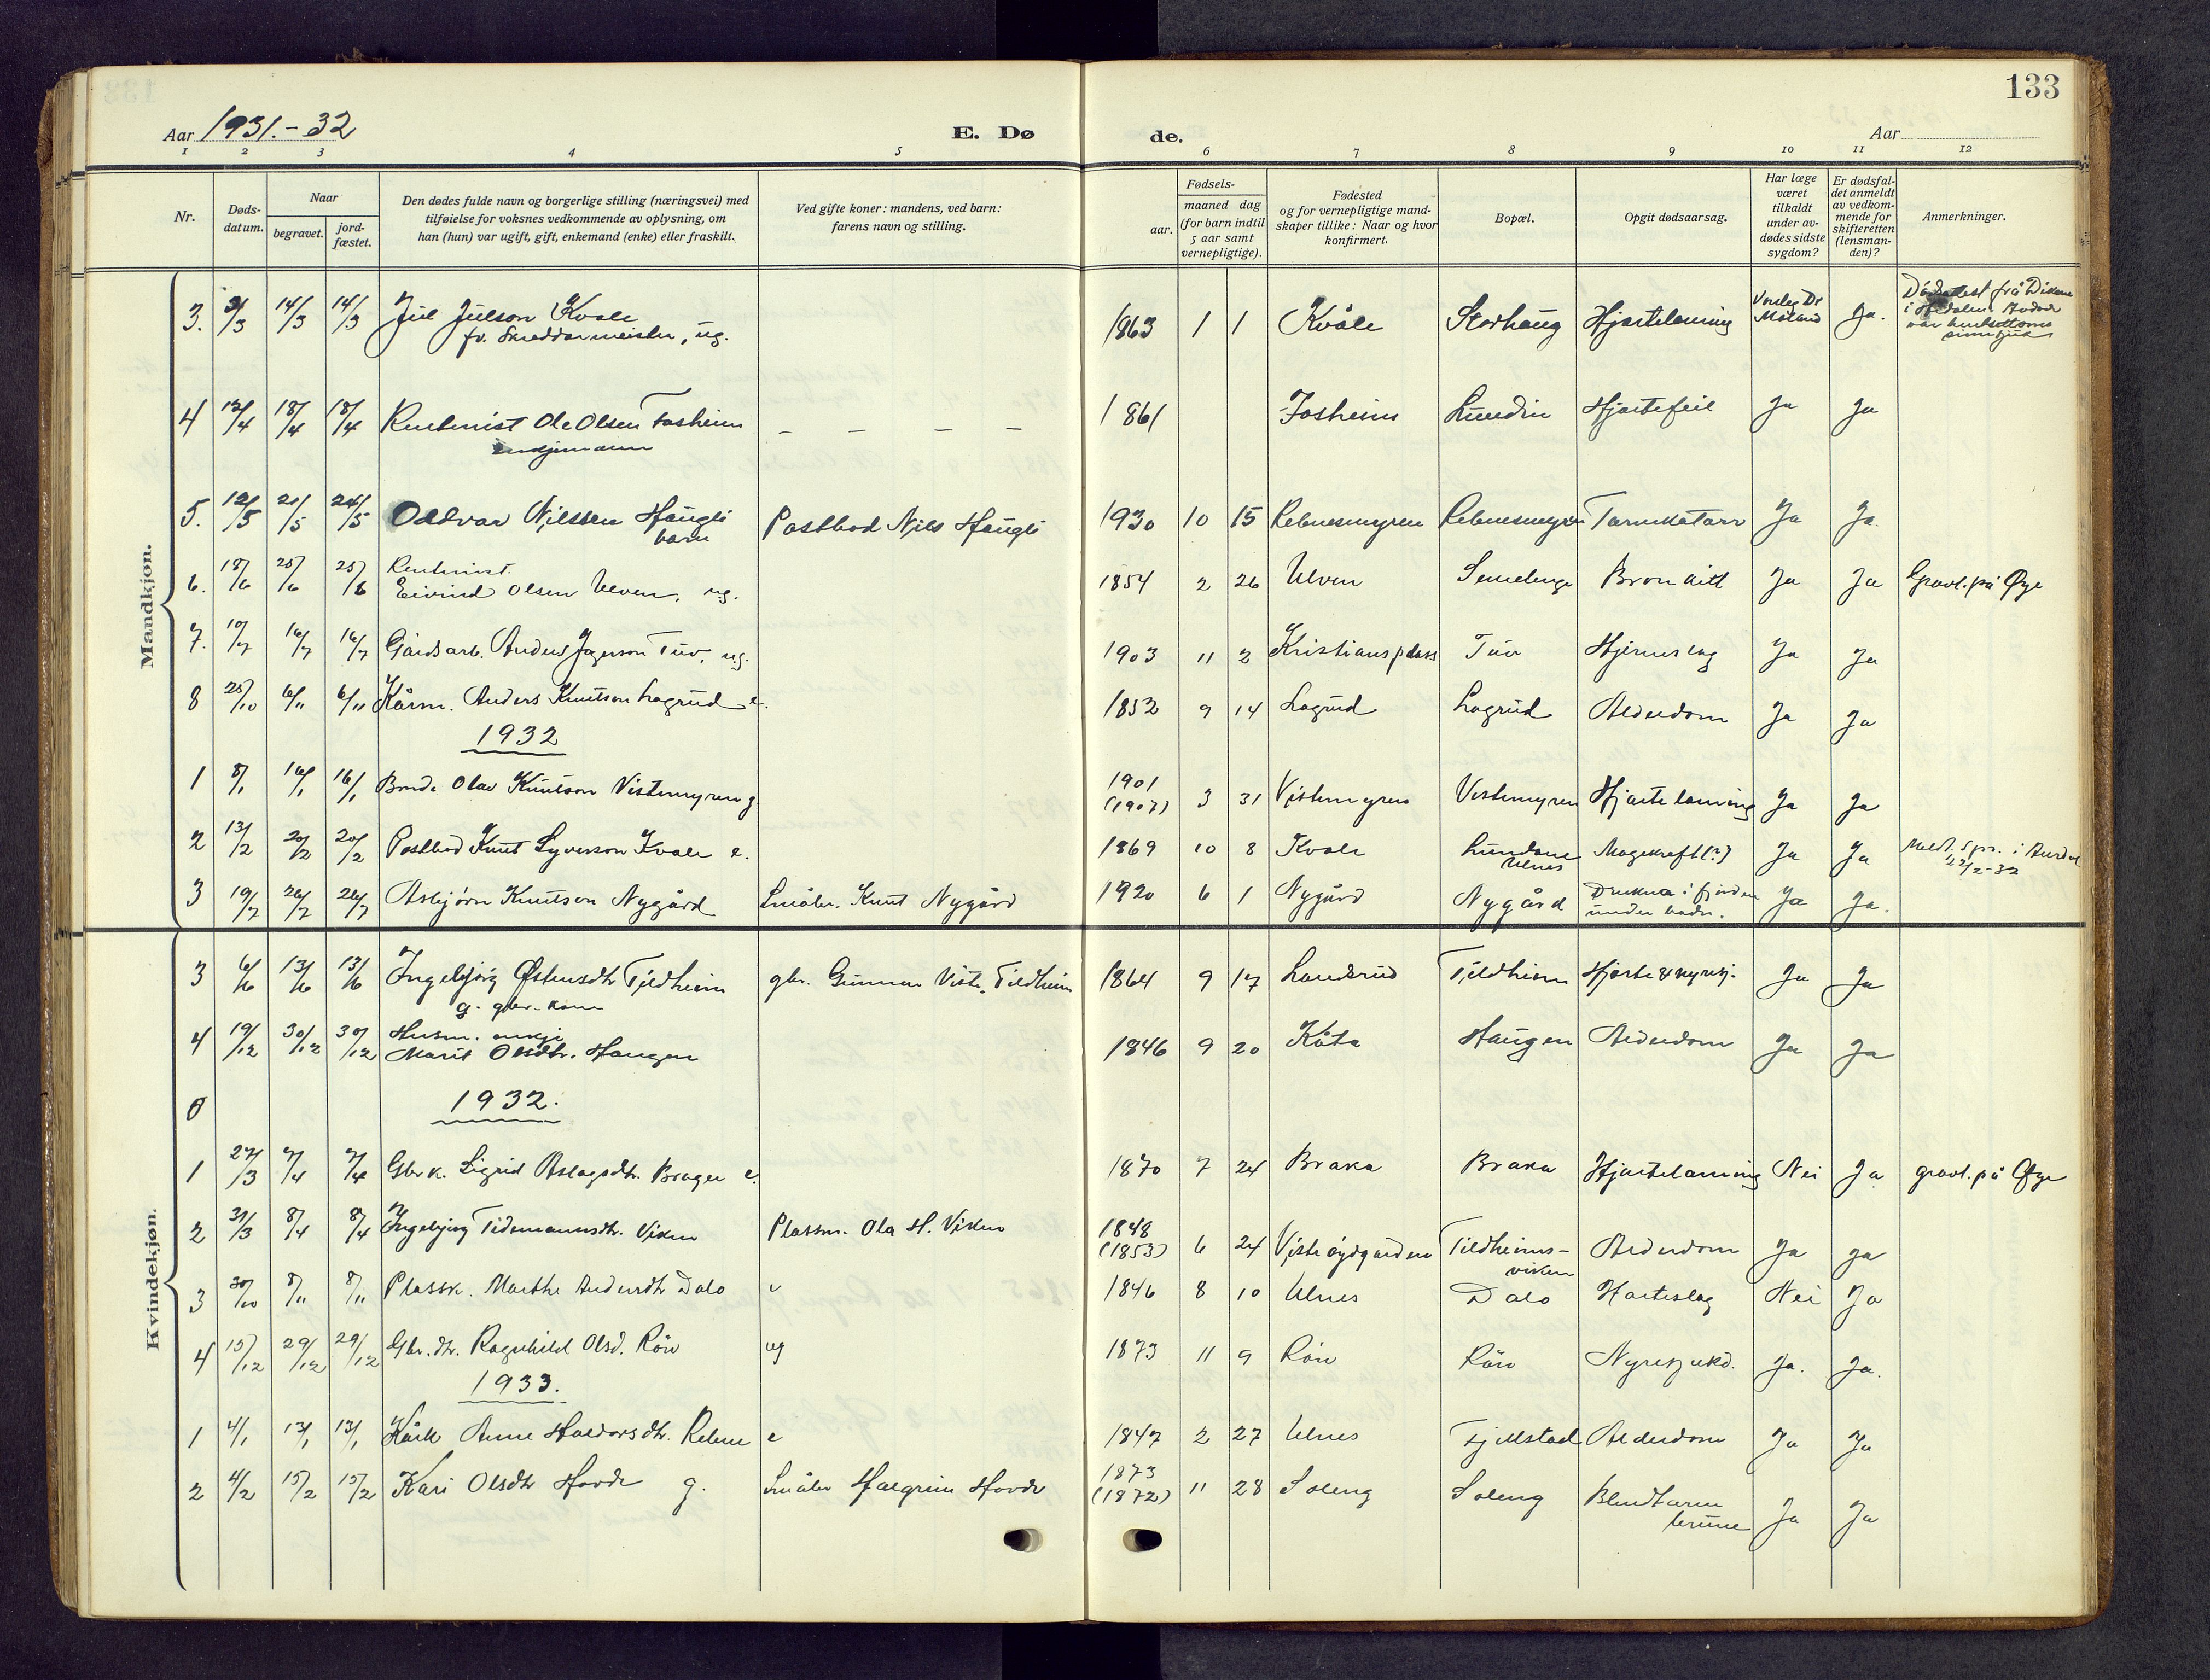 133
Aar 1931.-32
E. Dø de.
Aar
1 2 3 4 5 6 7 8 9 10 11 12
Nr.
Døds-datum.
Naar
begravet.
jord-fæstet.
Den dødes fulde navn og borgerlige stilling (næringsvei) med
tilføielse for voksnes vedkommende av oplysning, om
han (hun) var ugift, gift, enkemand (enke) eller fraskilt.
Ved gifte koner: mandens, ved barn:
farens navn og stilling.
Fødsels-
aar.
maaned dag
(for barn indtil
5 aar samt
vernepligtige).
Fødested
og for vernepligtige mand-
skaper tillike: Naar og hvor
konfirmert.
Bopæl.
Opgit dødsaarsag.
Har læge
været
tilkaldt
under av-
dødes sidste
sygdom?
Er dødsfal-
det anmeldt
av vedkom-
mende for
skifteretten
(lensman-
den)?
Anmerkninger.
Mandkjøn.
3. 9/3 14/3 14/3 Jul Julson Kvale 1863 1 1 Kvåle Storhaug Hjartelaming Ja.
fv. Skreddarmeister, ug.
4 12/4 18/4 18/4 Rentenist Ole Olsen Fosheim — — — — 1861 Fosheim Lundin Hjartefeil Ja Ja
enkjemann
5. 12/5 21/5 24/5 Oddvar Nilssen Haugli Postbod Nils Haugli 1930 10 15 Rebnesmyren Rebnesmyren Tarmkatarr Ja Ja
barn
6. 18/6 25/6 25/6 Rentenist
Eivind Olsen Ulven, ug. 1854 2 26 Ulven Semelenge Bronkitt Ja Ja Gravl. på Øye
7. 10/7 16/7 16/7 Gårdsarb. Anders Tuv, ug. 1903 11 2 Kristiansplass Tuv Hjerneslag Ja Ja
8 25/10 6/11 6/11 Kårm. Anders Knutson Lagrud e. 1852 9 14 Lagrud Lagrud Alderdom Ja Ja
1932
1 8/1 16/1 16/1 Bonde Olav Knutson Vistemyren g. 1901 (1907) 3 31 Vistemyren Vestemyren Hjartelaming Ja Ja
2 13/2 20/2 20/2 Postbod Knut Syverson Kvale e. 1869 10 8 Kvale Lundane Ulnes Magekreft(?) Ja Ja Meldt. Spr. i Aurdal 22/2-32
3 19/7 26/7 26/7 Asbjørn Knutson Nygård Småbr. Knut Nygård 1920 6 1 Nygård Nygård Drukna i fjorden under badn. Ja Ja.
Kvindekjøn.
3 6/6 13/6 13/6 Ingebjørg Østensdtr Tildheim gbr. Gunnar Viste, Tildheim 1864 9 17 Landsrud Tildheim Hjarte & nyresj. Ja Ja
g. gbr.-kone
4 19/12 30/12 30/12 Husm. enkje
Marit Olsdtr. Haugen 1846 9 20 Kåta Haugen Alderdom Ja Ja
0 1932.
1 27/3 7/4 7/4 Gbrk. Sigrid Aslagsdtr. Brager e. 1870 7 24 Braka Braka Hjartelaming Nei Ja gravl. på Øye
2 31/3 8/4 8/4 Ingebjørg Tidemannsdtr. Viken Plassm. Ola H. Viken 1848 (1853) 6 24 Viste øydgarden Tildheims-viken Alderdom Ja Ja
3 30/10 8/11 8/11 Plassk. Marthe Andersdtr Dalo e 1846 8 10 Ulnes Dalo Harteslag Nei Ja
4 15/12 29/12 29/12 Gbr.dtr. Ragnhild Olsd. Røn ug 1873 11 9 Røn Røn Nyresjukd. Ja. Ja.
1933.
1 4/1 13/1 13/1 Kårk Anne Haldorsdtr. Rebne e 1847 2 27 Ulnes Fjellstad Alderdom Ja Ja
2 4/2 15/2 15/2 Kari Olsdtr Hovde g. Småbr Halgrim Hovde 1873 (1872) 11 28 Soleng Soleng Blindtarm Ja Ja